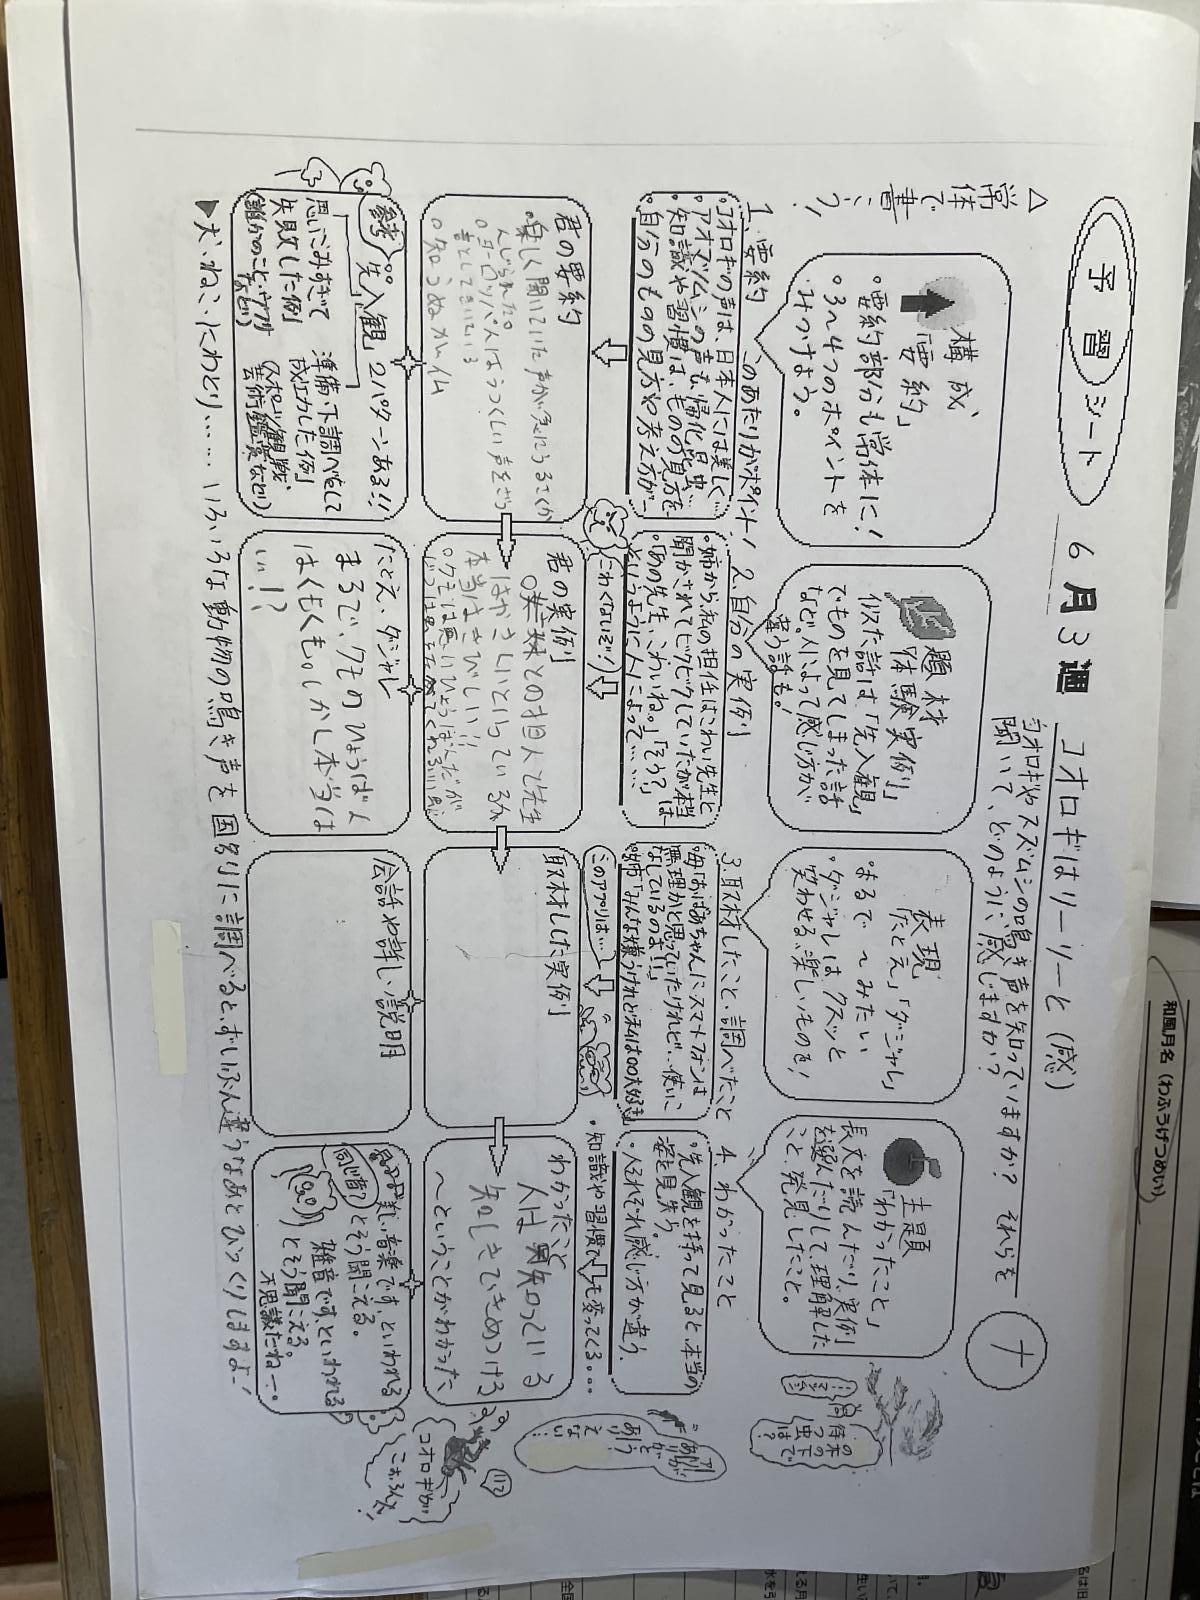 予習シート
6月3週
コオロギはリーリーと（感）
コオロギやスズムシの鳴き声を知っていますか？それらを
聞いて、どのように感じますか？
ナ
△常体で書こう！
構成
「要約」
・要約部分も常体に！
・3〜4つのポイントを
みつけよう。
題材
「体験実例」
似た話は「先入観」
でものを見てしまった話
など。人によって感じ方が
違う話も！
表現
「たとえ」「ダジャレ」
・まるで〜みたい
・ダジャレはクスッと
笑わせる、楽しいものを！
主題
「わかったこと」
長文を読んだり、実例
を選んだりして理解した
こと、発見したこと。
1、要約 このあたりがポイント！
・コオロギの声は、日本人には美しく…
・アオマツムシの声も、帰化昆虫…
・知識や習慣は、ものの見方を
・自分のものの見方や考え方が…
2、自分の実例
・姉から私の担任はこわい先生と
聞かされてビクビクしていたが本当は
・「あの先生、こわいね。」「そう？」
というように人によって……
3、取材したこと、調べたこと
・母「おばあちゃんにスマートフォンは
無理かと思っていたけれど、使いこ
なしているのよ！」
4、わかったこと
・先入観を持って見ると、本当の
姿を見失う。
・人それぞれ感じ方が違う。
・知識や習慣で
も変ってくる。。。
こわくないぞ！
このアプリは…
君の要約
楽しく聞いていた声が急にうるさくか
んじられた。
○ヨーロッパ人はうつくしい声をざつ
音としてきいている
○知らぬが仏
君の実例
との担任の先生
はやさしいといっているが
本当はきびしい！！
○クモは悪いひょうばんだが
取材した実例
わかったこと
人は知っている
知しきできめつける
〜ということがわかった
参考
「先入観」2パターンある！！
思いこみすぎて
失敗した例
準備・下調べをして
成功した例
（スポーツ観戦、
芸術鑑賞など）
たとえ、ダジャレ
まるで、クモのひょうばん
はくもくも。しかし本当は
いい！？
会話や詳しい説明
難い音楽です、といわれる
とそう聞こえる。
雑音です、といわれる
とそう聞こえる。
不思議だねー。
コオロギが
こおろんだ！
▼犬、ねこ、にわとり……いろいろな動物の鳴き声を国別に調べると、ずいぶん違うなあとびっくりしますよ！
和風月名（わふうげつめい）